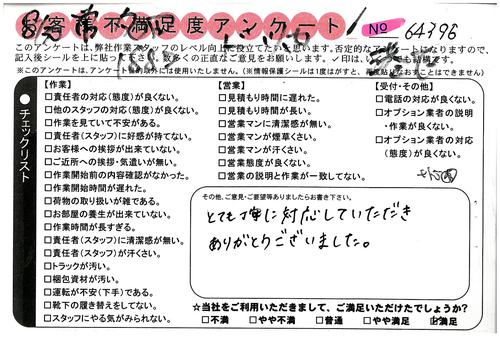 お客様不満足度アンケート
No 64396
このアンケートは、弊社作業スタッフのレベル向上に役立てたいと思います。否定的なアンケートになりますので、
記入後シールを上に貼っ 数多くの正直なご意見をお願いします。✓印は、
※このアンケートは、アンケート 以外には使用いたしません。(※情報保護シールは1度はがすと、再度貼りなおすことはできません)
チェックリスト
【作業】
□責任者の対応(態度)が良くない。
□他のスタッフの対応(態度)が良くない。
□作業を見ていて不安がある。
□責任者(スタッフ)に好感が持てない。
□お客様への挨拶が出来ていない。
□ご近所への挨拶・気遣いが無い。
□作業開始前の内容確認がなかった。
□作業開始時間が遅れた。
□荷物の取り扱いが雑である。
□お部屋の養生が出来ていない。
□作業時間が長すぎる。
□責任者(スタッフ)に清潔感が無い。
□責任者(スタッフ)が汗くさい。
□トラックが汚い。
□梱包資材が汚い。
□運転が不安(下手)である。
□靴下の履き替えをしてない。
□スタッフにやる気がみられない。
【営業】
□見積もり時間に遅れた。
□見積もり時間が長い。
□営業マンに清潔感が無い。
□営業マンが煙草くさい。
□営業マンが汗くさい。
□営業態度が良くない。
□営業の説明と作業が一致してない。
【受付・その他】
□電話の対応が良くない。
□オプション業者の説明
・作業が良くない。
□オプション業者の対応
(態度)が良くない。
その他、ご意見・ご要望等ありましたらお書き下さい。
とても丁寧に対応していただき
ありがとうございました。
☆当社をご利用いただきまして、ご満足いただけたでしょうか?
□不満 □やや不満 □普通 □やや満足 ☑満足